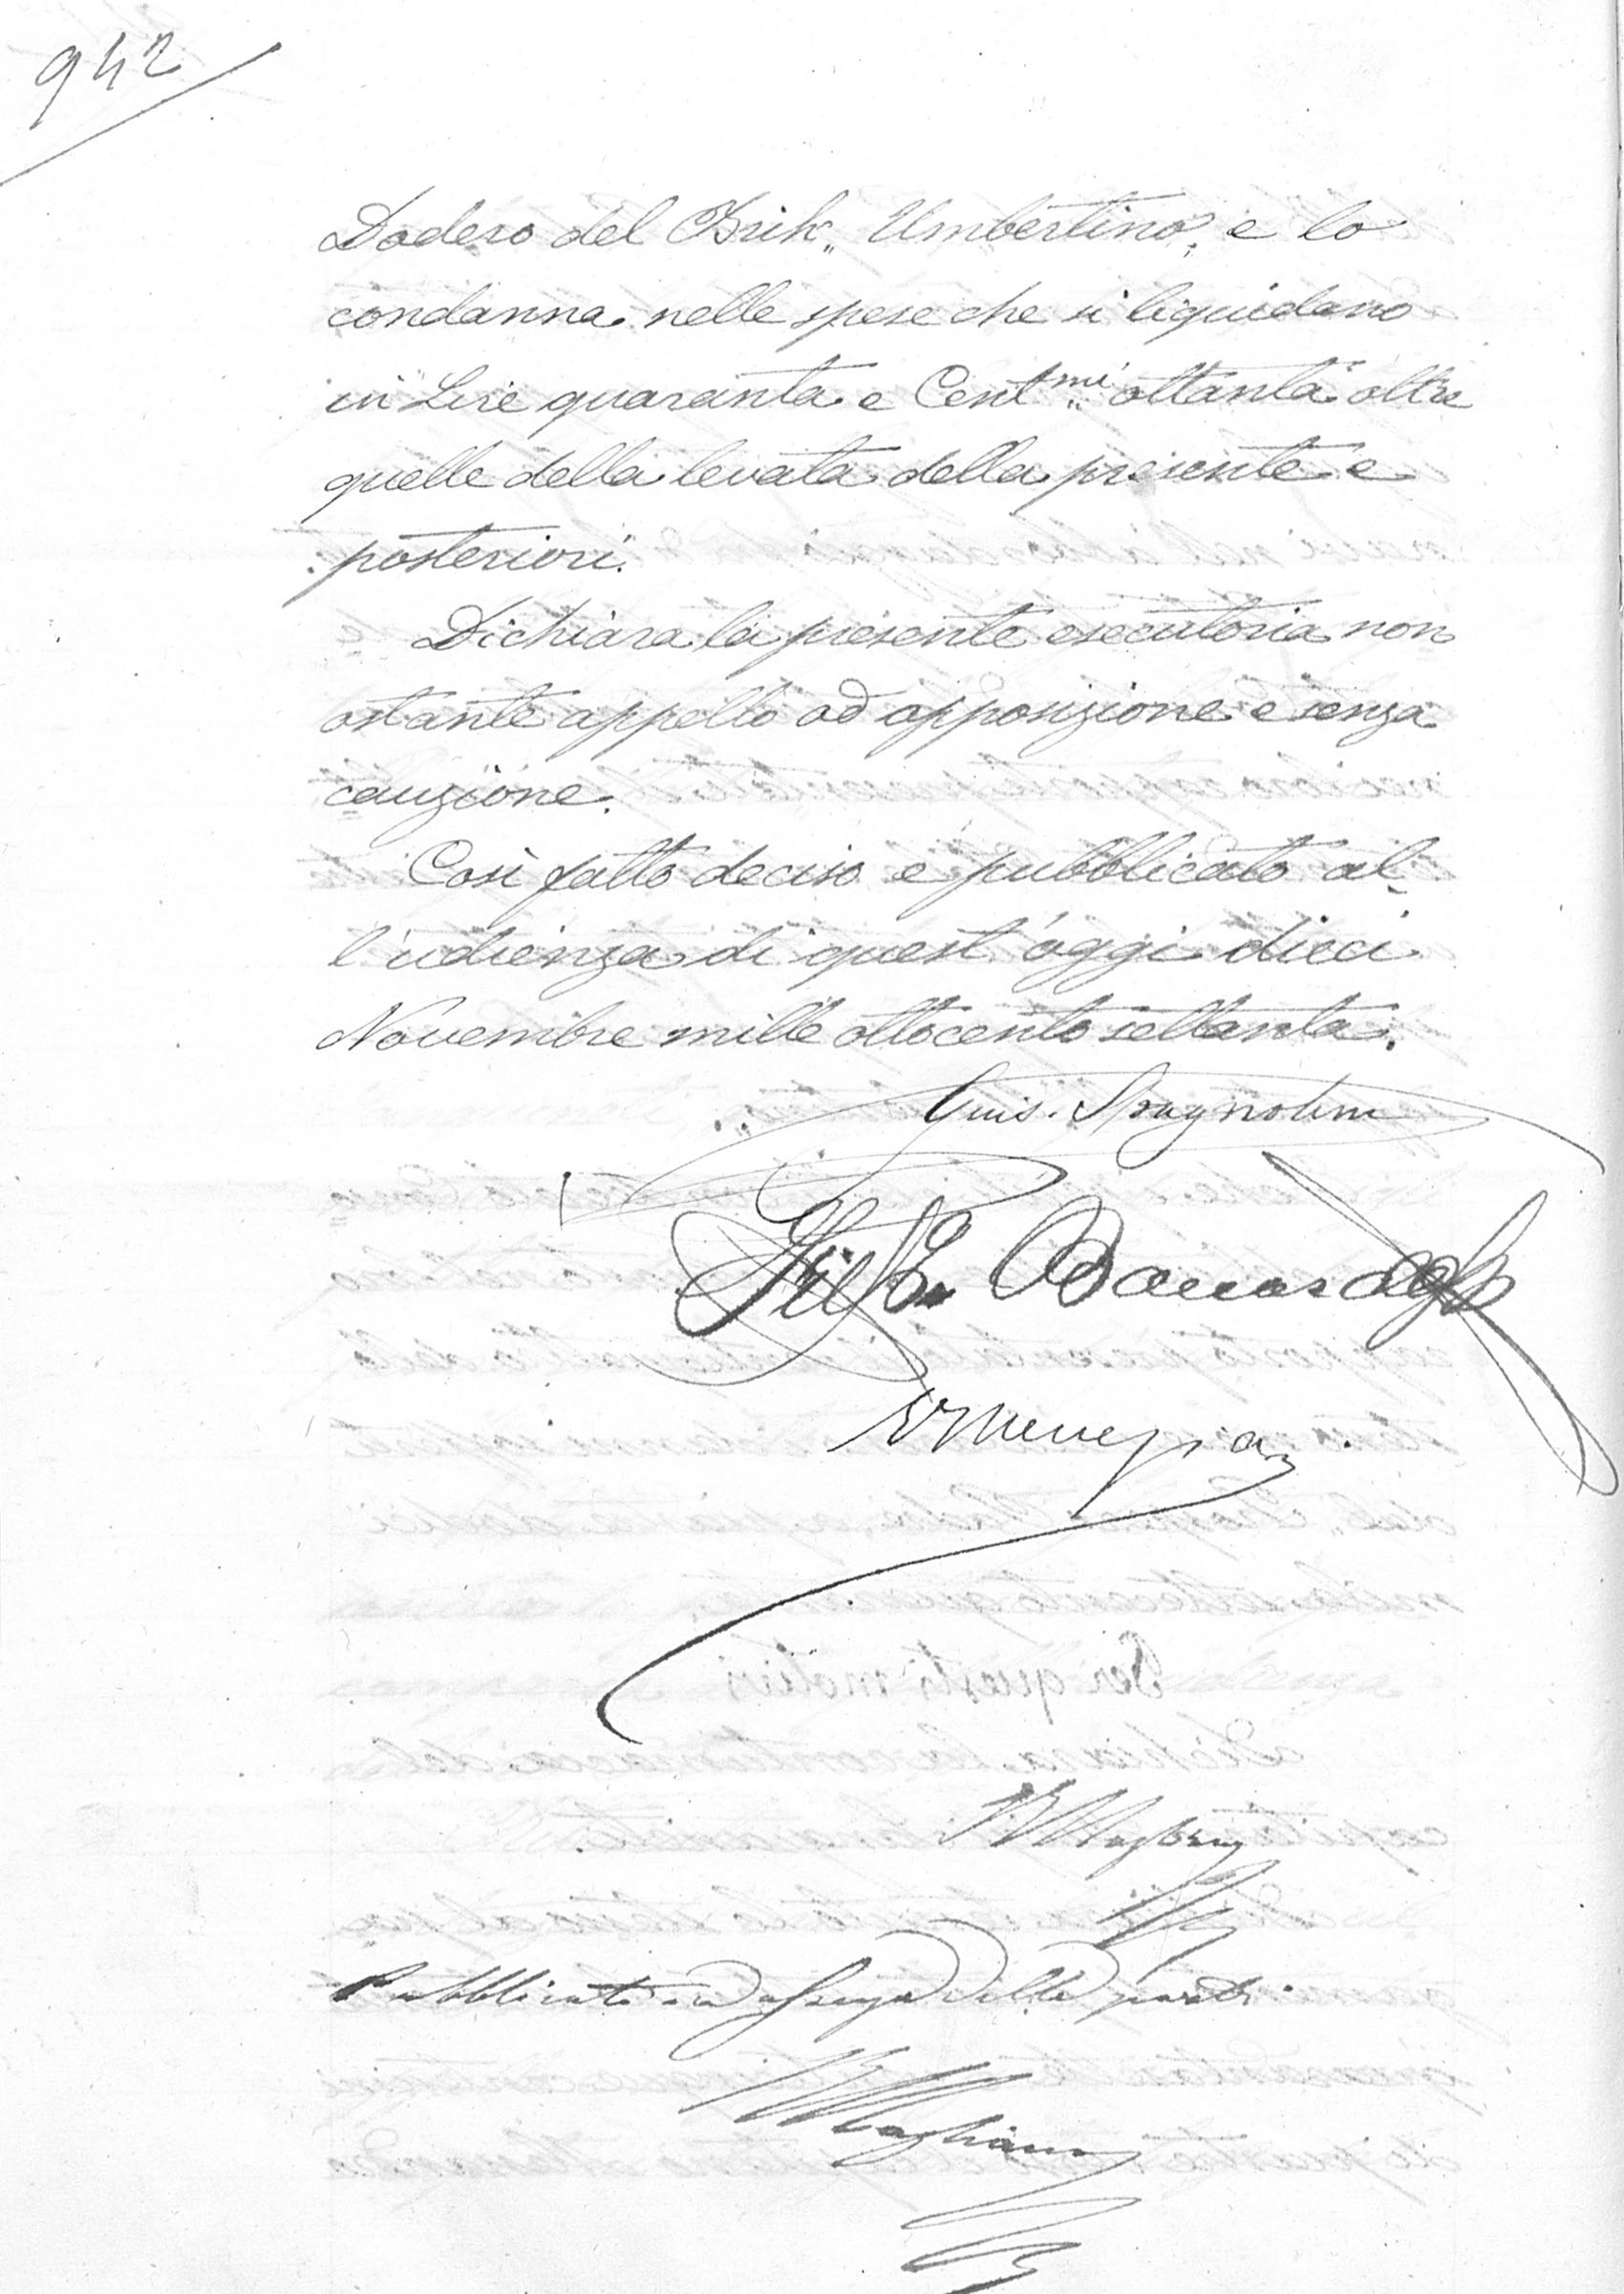 942
Dodero del Brik „ Umbertino „ e lo
condanna nelle spese che si liquidano
in Lire quaranta e Cent.mi ottanta oltre
quelle della levata della presente e
posteriori.
Dichiara la presente esecutoria non
ostante appello od opposizione e senza
cauzione.
Così fatto deciso e pubblicato al-
l'udienza di quest'oggi dieci
Novembre mille ottocento settanta.
Gius. Spagnolini
Pubblicata delle parti.